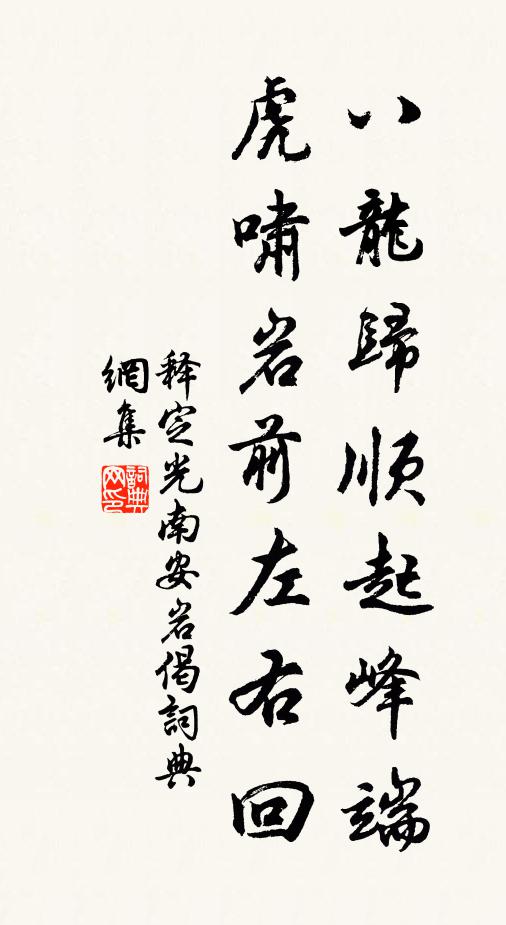 八龍歸順起峰端
虎嘯岩前左右回
释定光南安岩偈詞典
網集
詞典網印